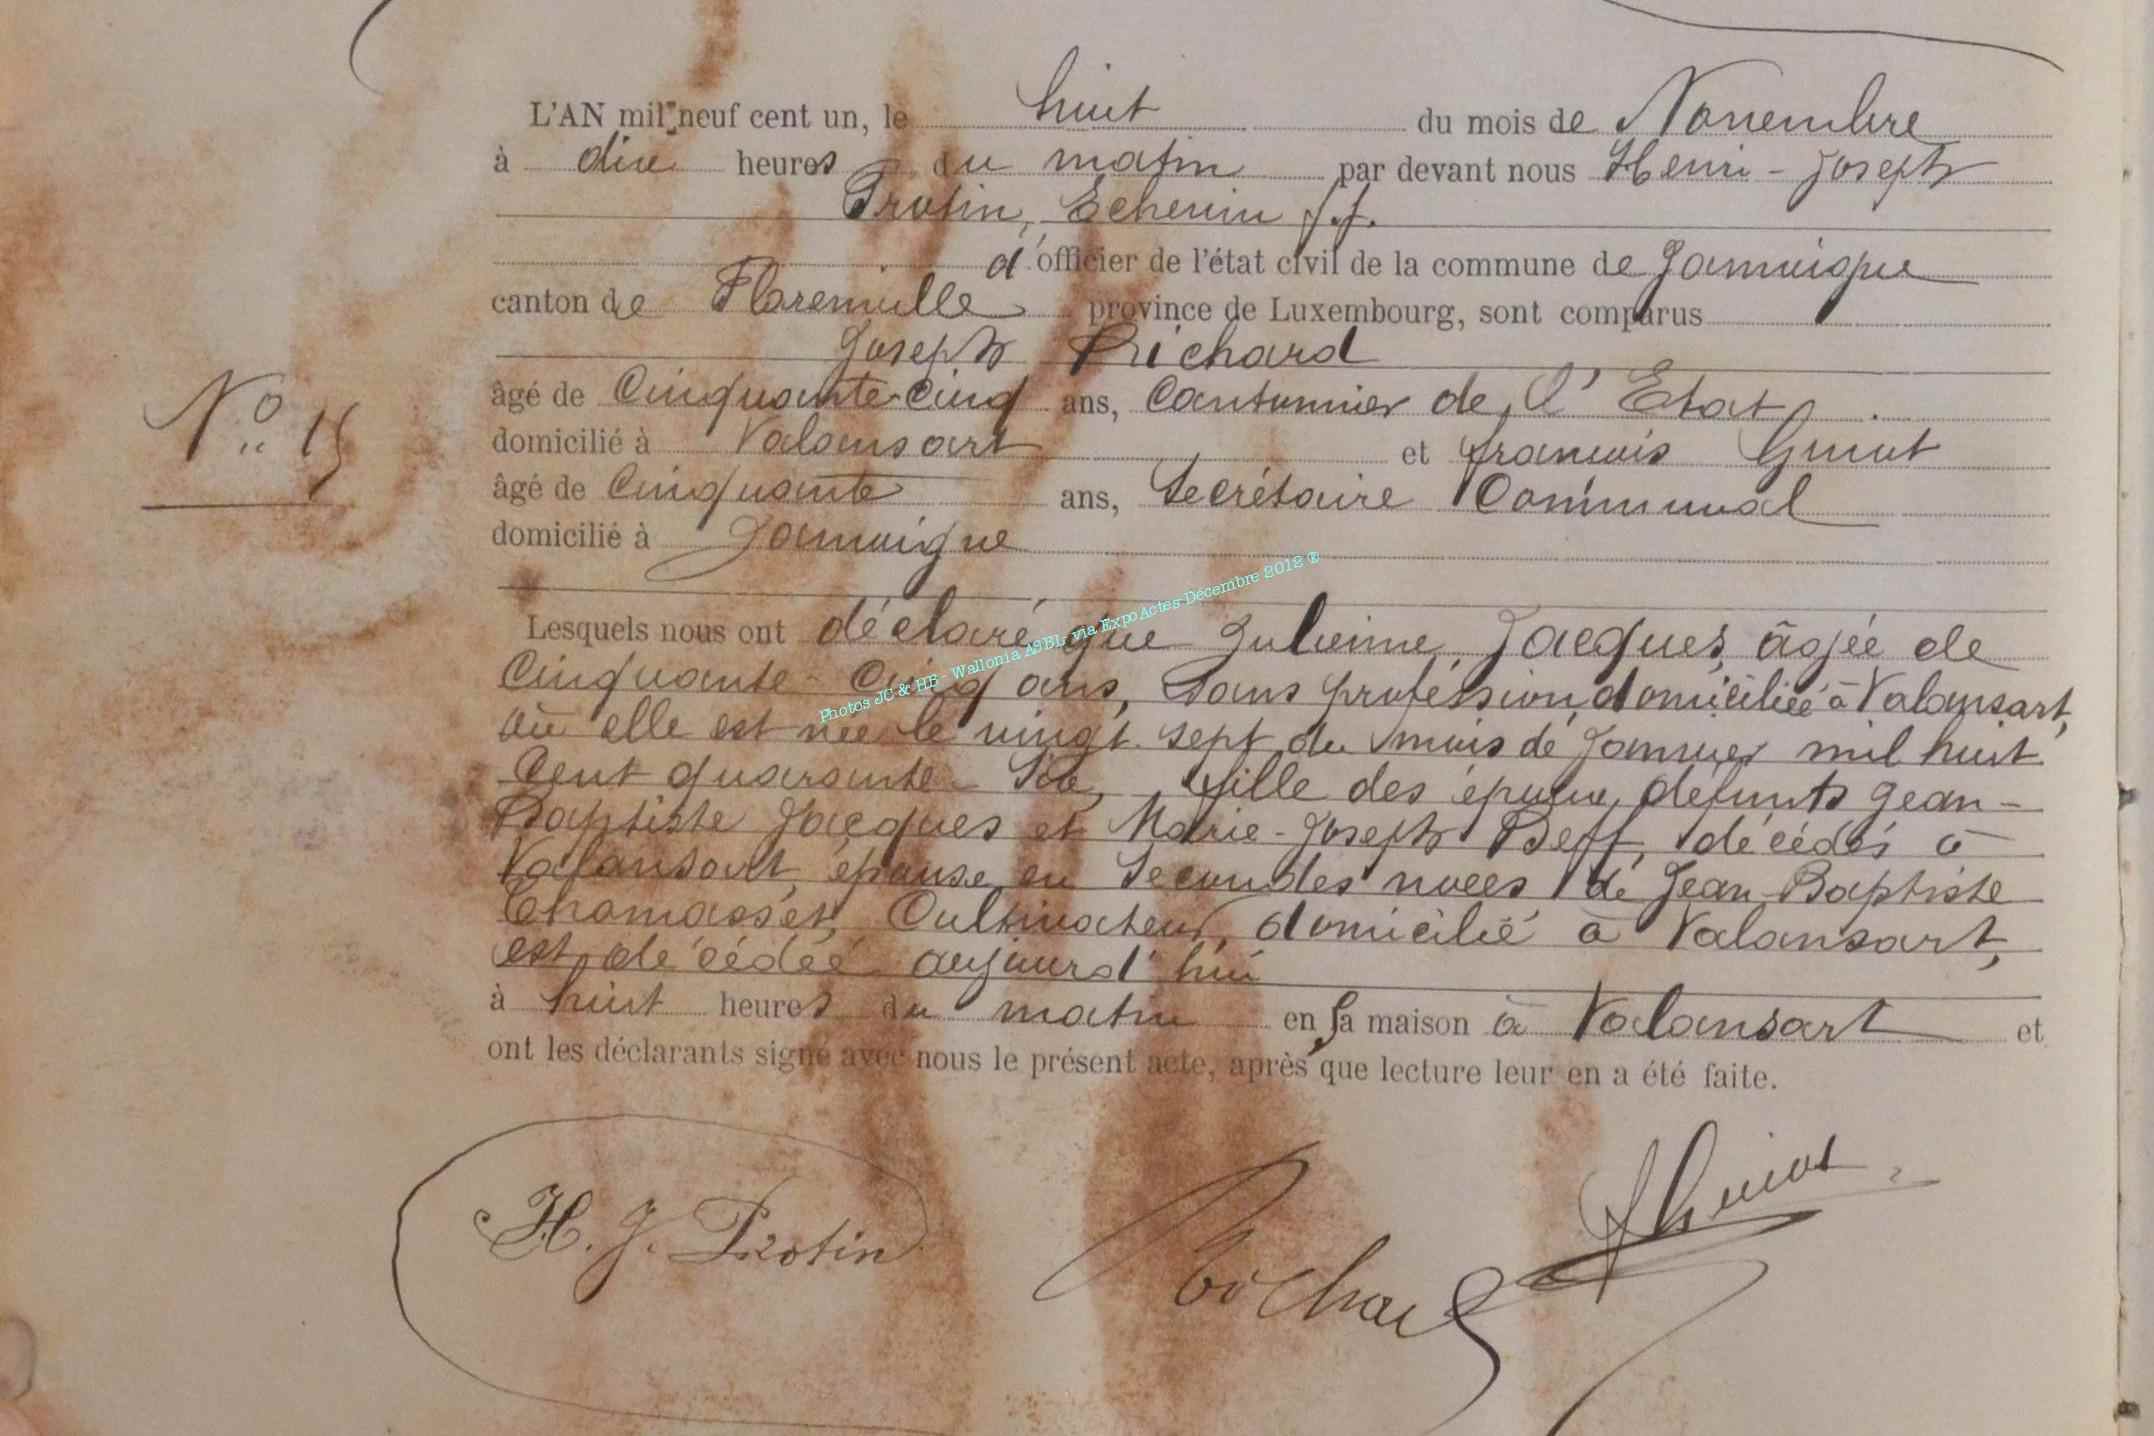 L'AN mil neuf cent un, le huit du mois de Novembre
à dix heures du matin par devant nous Henri-Joseph
Protin, Echevin f.f.
d'officier de l'état civil de la commune de Jamoigne
canton de Florenville province de Luxembourg, sont comparus
Joseph Richard
âgé de Cinquante-cinq ans, Cantonnier de l'Etat
domicilié à Valansart et François Guiot
âgé de Cinquante ans, Secrétaire Communal
N° 15
domicilié à Jamoigne
Lesquels nous ont déclaré que Julienne Jacques, âgée de
Cinquante-Cinq ans, Sans profession, domiciliée à Valansart,
où elle est née le vingt-sept du mois de Janvier mil huit
Cent quarante-Six, fille des époux défunts Jean-
Baptiste Jacques et Marie-Joseph Beff, décédés à
Valansart, épouse en Secondes noces de Jean-Baptiste
Thomasset, Cultivateur, domicilié à Valansart,
est décédée aujourd'hui
à huit heures du matin en sa maison à Valansart et
ont les déclarants signé avec nous le présent acte, après que lecture leur en a été faite.
H. J. Protin Richard F Guiot
Photos JC & HB - Wallonia ASBL via ExpoActes-Décembre 2012 ®